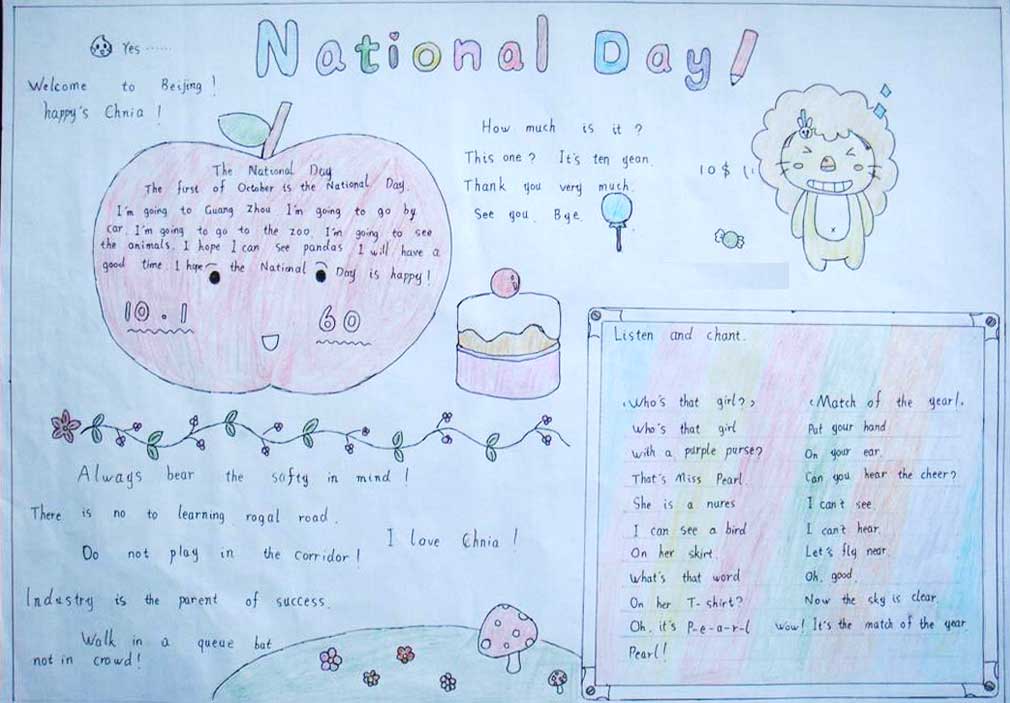 National Day!
Yes ......
Welcome to Beijing!
happy's Chnia!
The National Day
The first of October is the National Day.
I'm going to Guang Zhou I'm going to go by
car. I'm going to go to the zoo. I'm going to see
the animals. I hope I can see pandas I will have a
good time. I hope the National Day is happy!
10.1
60
How much is it?
This one? It's ten yean.
Thank you very much.
See you. Bye.
10$
Always bear the safty in mind!
There is no to learning rogal road.
Do not play in the corridor!
I love Chnia!
Industry is the parent of success.
Walk in a queue bat
not in crowd!
Listen and chant.
‹Who's that girl?›
Who's that girl
with a purple purse?
That's Miss Pearl.
She is a nures
I can see a bird
On her skirt.
What's that word
On her T-shirt?
Oh, it's P-e-a-r-l
Pearl!
‹Match of the year!.
Put your hand
On your ear.
Can you hear the cheer?
I can't see.
I can't hear.
Let's fly near.
Oh, good.
Now the sky is clear.
Wow! It's the match of the year.